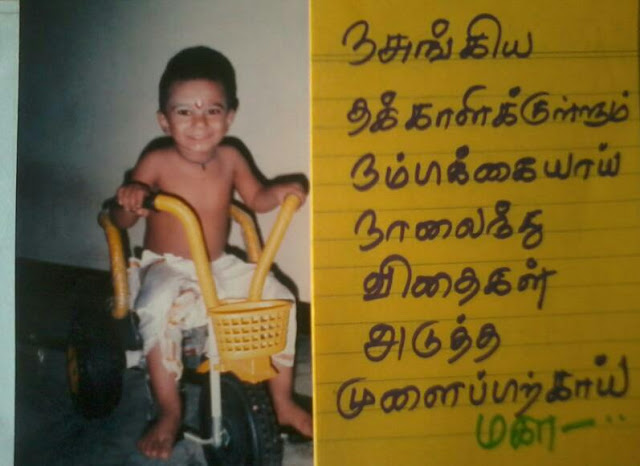 நசுங்கிய
தக்காளிக்குள்ளும்
நம்பிக்கையாய்
நாலைந்து
விதைகள்
அடுத்த
முளைப்பிற்காய்